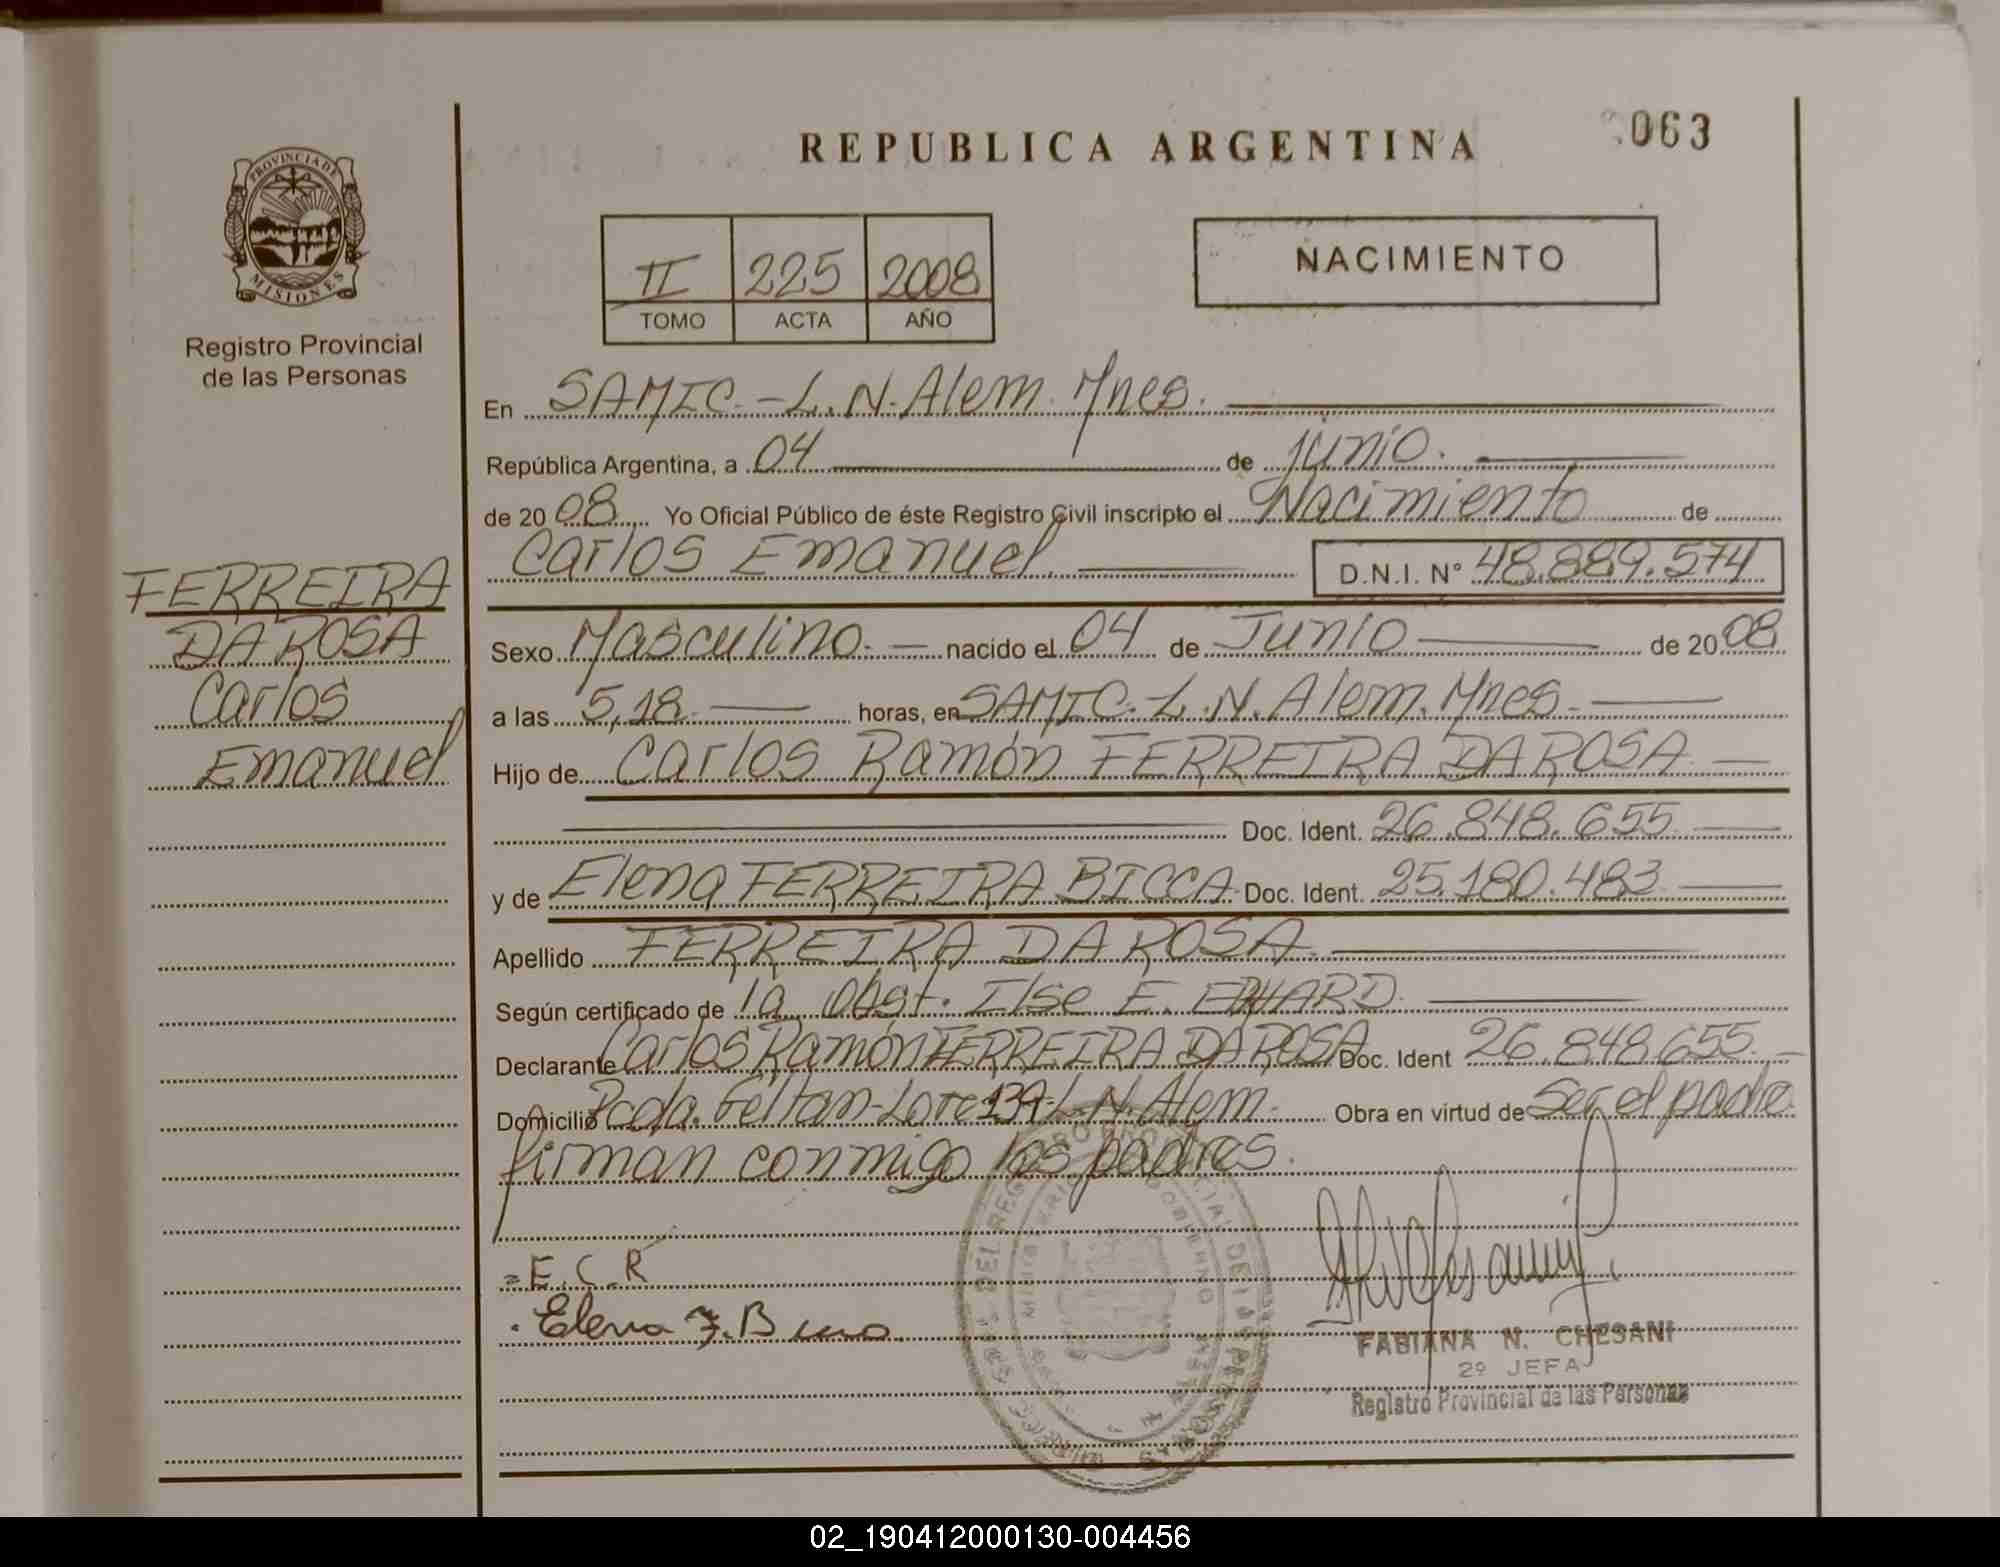 REPUBLICA ARGENTINA
063
PROVINCIA DE
MISIONES
Registro Provincial
de las Personas
II 225 2008
TOMO ACTA AÑO
NACIMIENTO
En SAMIC.-L.N.Alem.Mnes.
República Argentina, a 04 de junio.
de 2008 Yo Oficial Público de éste Registro Civil inscripto el Nacimiento de
Carlos Emanuel. D.N.I. N° 48.889.574
FERREIRA
DA ROSA
Carlos
Emanuel
Sexo Masculino.- nacido el 04 de Junio de 2008
a las 5,18. horas, en SAMIC.L.N.Alem.Mnes.
Hijo de Carlos Ramón FERREIRA DA ROSA
Doc. Ident. 26.848.655
y de Elena FERREIRA BICCA Doc. Ident. 25.180.483
Apellido FERREIRA DA ROSA.
Según certificado de la Obst. Ilse E.
Declarante Carlos Ramón FERREIRA DA ROSA Doc. Ident 26.848.655.
Domicilio Pcda. Feltan-Lote 139-L.N.Alem. Obra en virtud de Ser el padre
firman conmigo los padres.
E.C.R
Elena F.B
FABIANA N. CHESANI
2º JEFA
Registro Provincial de las Personas
02_190412000130-004456